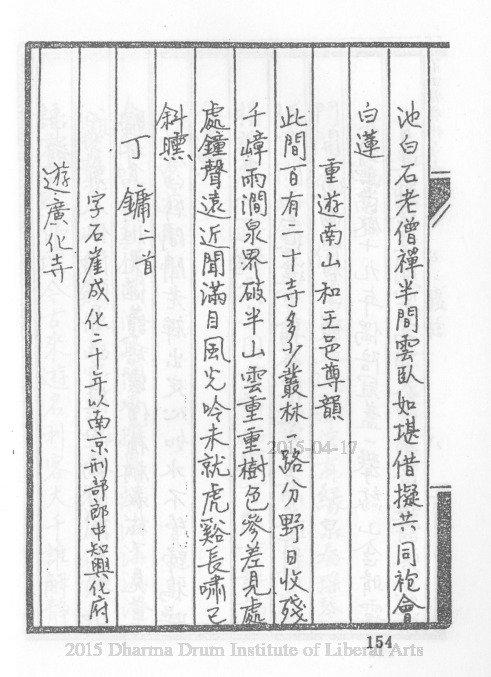 池白石老僧禪半間雲臥如堪借擬共同袍會
白蓮
重遊南山和王邑尊韻
此間百有二十寺多少叢林一路分野日收殘
千嶂雨澗泉界破半山雲重重樹色參差見處
處鐘聲遠近聞滿目風光吟未就虎谿長嘯已
斜曛
丁鏞二首
字石崖成化二十年以南京刑部郎中知興化府
遊廣化寺
2015-04-17
154
2015 Dharma Drum Institute of Liberal Arts